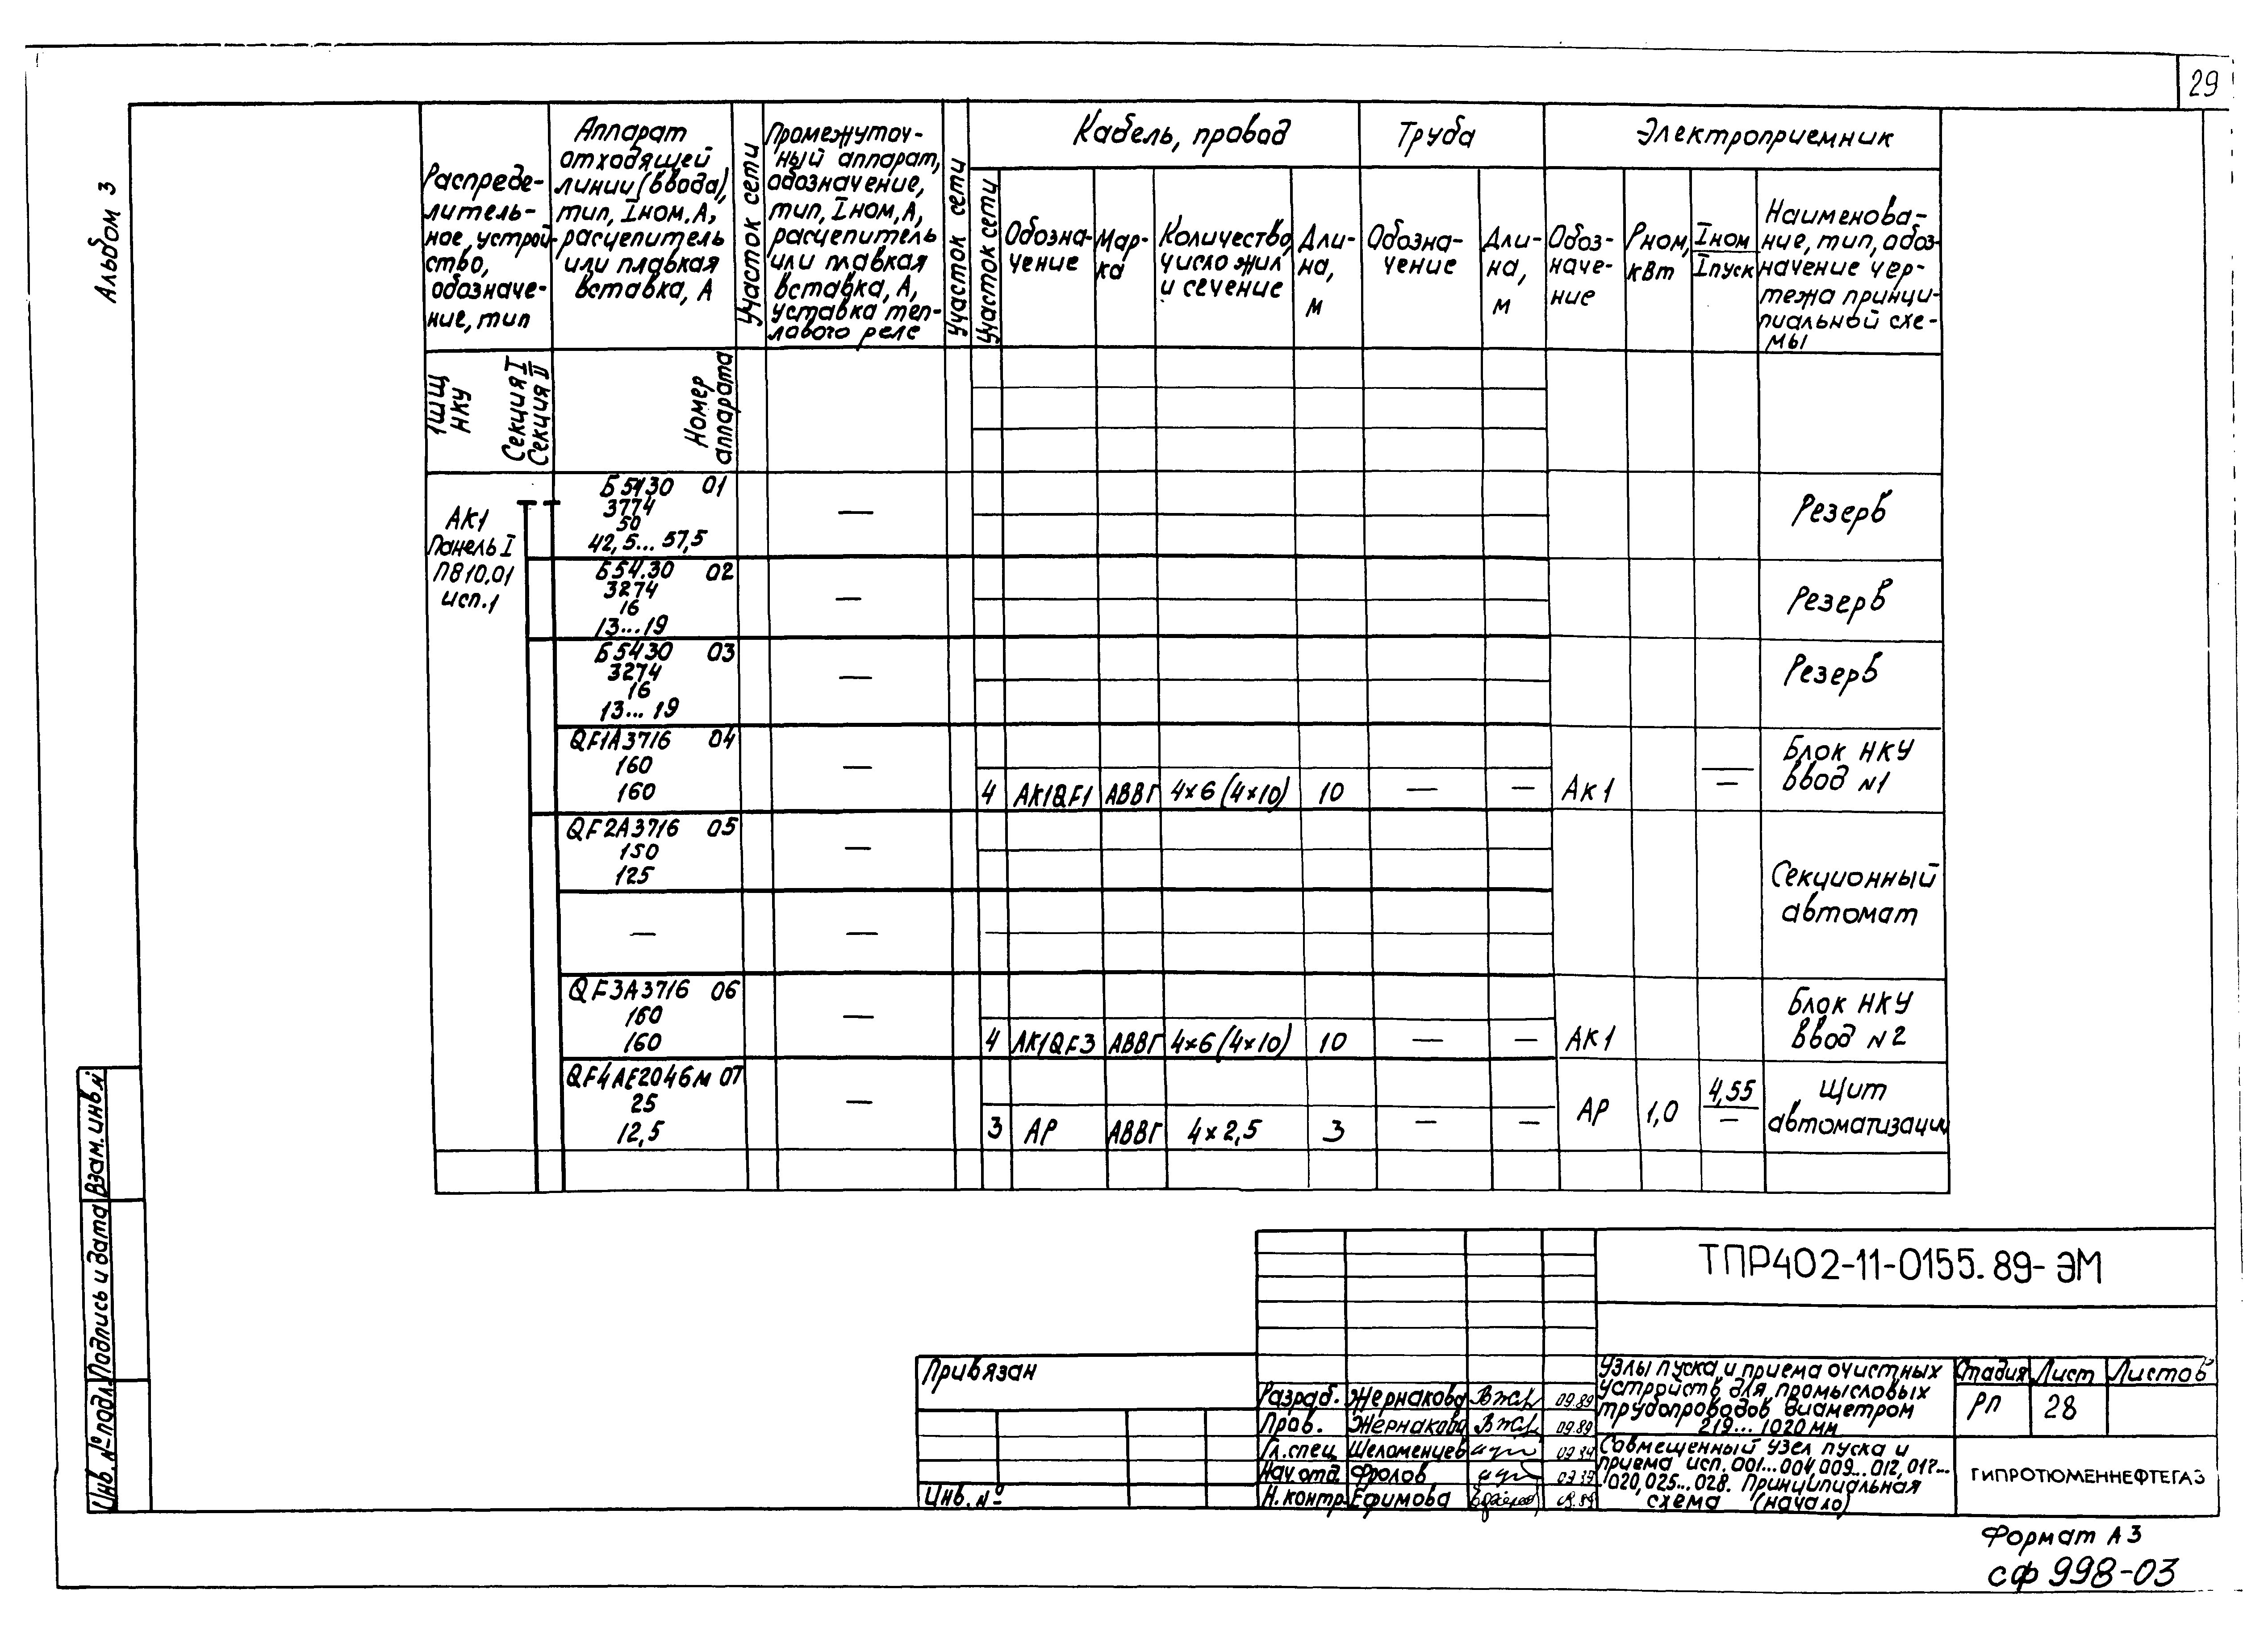 29
Альбом 3
Распреде-
литель-
ное устрой-
ство,
обозначе-
ние, тип
Аппарат
отходящей
линии (ввода),
тип, Iном. А,
расцепитель
или плавкая
вставка, А
Участок сети
Промежуточ-
ный аппарат,
обозначение,
тип, Iном, А,
расцепитель
или плавкая
вставка, А,
уставка теп-
лового реле
Участок сети
Кабель, провод
Участок сети
Обозна-
чение
Мар-
ка
Количество,
число жил
и сечение
Дли-
на,
м
Труба
Обозна-
чение
Дли-
на,
м
Электроприемник
Обоз-
наче-
ние
Рном,
кВт
Iном
Iпуск
Наименова-
ние, тип, обоз-
начение чер-
тежа принци-
пиальной схе-
мы
1ШЩ
НКУ
Секция I
Секция II
Номер
аппарата
АК1
Панель I
П810.01
исп.1
Б5430 01
3774
50
42,5...57,5
—
Резерв
Б54.30 02
3274
16
13...19
—
Резерв
Б5430 03
3274
16
13...19
—
Резерв
QF1А3716 04
160
160
—
4 АК1QF1 АВВГ 4×6 (4×10) 10 — — АК1 —
Блок НКУ
ввод N1
QF2А3716 05
150
125
—
Секционный
автомат
— —
QF3А3716 06
160
160
—
4 АК1QF3 АВВГ 4×6 (4×10) 10 — — АК1
Блок НКУ
ввод N2
QF4АЕ2046М 07
25
12,5
—
3 АР АВВГ 4×2,5 3 — — АР 1,0 4,55 —
Щит
автоматизации
Взам. инв. №
Подпись и дата
Инв. № подл.
ТПР402-11-0155.89-ЭМ
Привязан
Инв. №
Разраб. Жернакова 09.89
Пров. Жернакова 09.89
Гл. спец. Шеломенцев 09.89
Нач. отд. Фролов 09.89
Н. контр. Ефимова 09.89
Узлы пуска и приема очистных
устройств для промысловых
трубопроводов диаметром
219...1020 мм
Стадия Лист Листов
РП 28
Совмещенный узел пуска и
приема исп. 001...004,009...012,017...
020,025...028. Принципиальная
схема (начало)
ГИПРОТЮМЕННЕФТЕГАЗ
Формат А3
сф 998-03